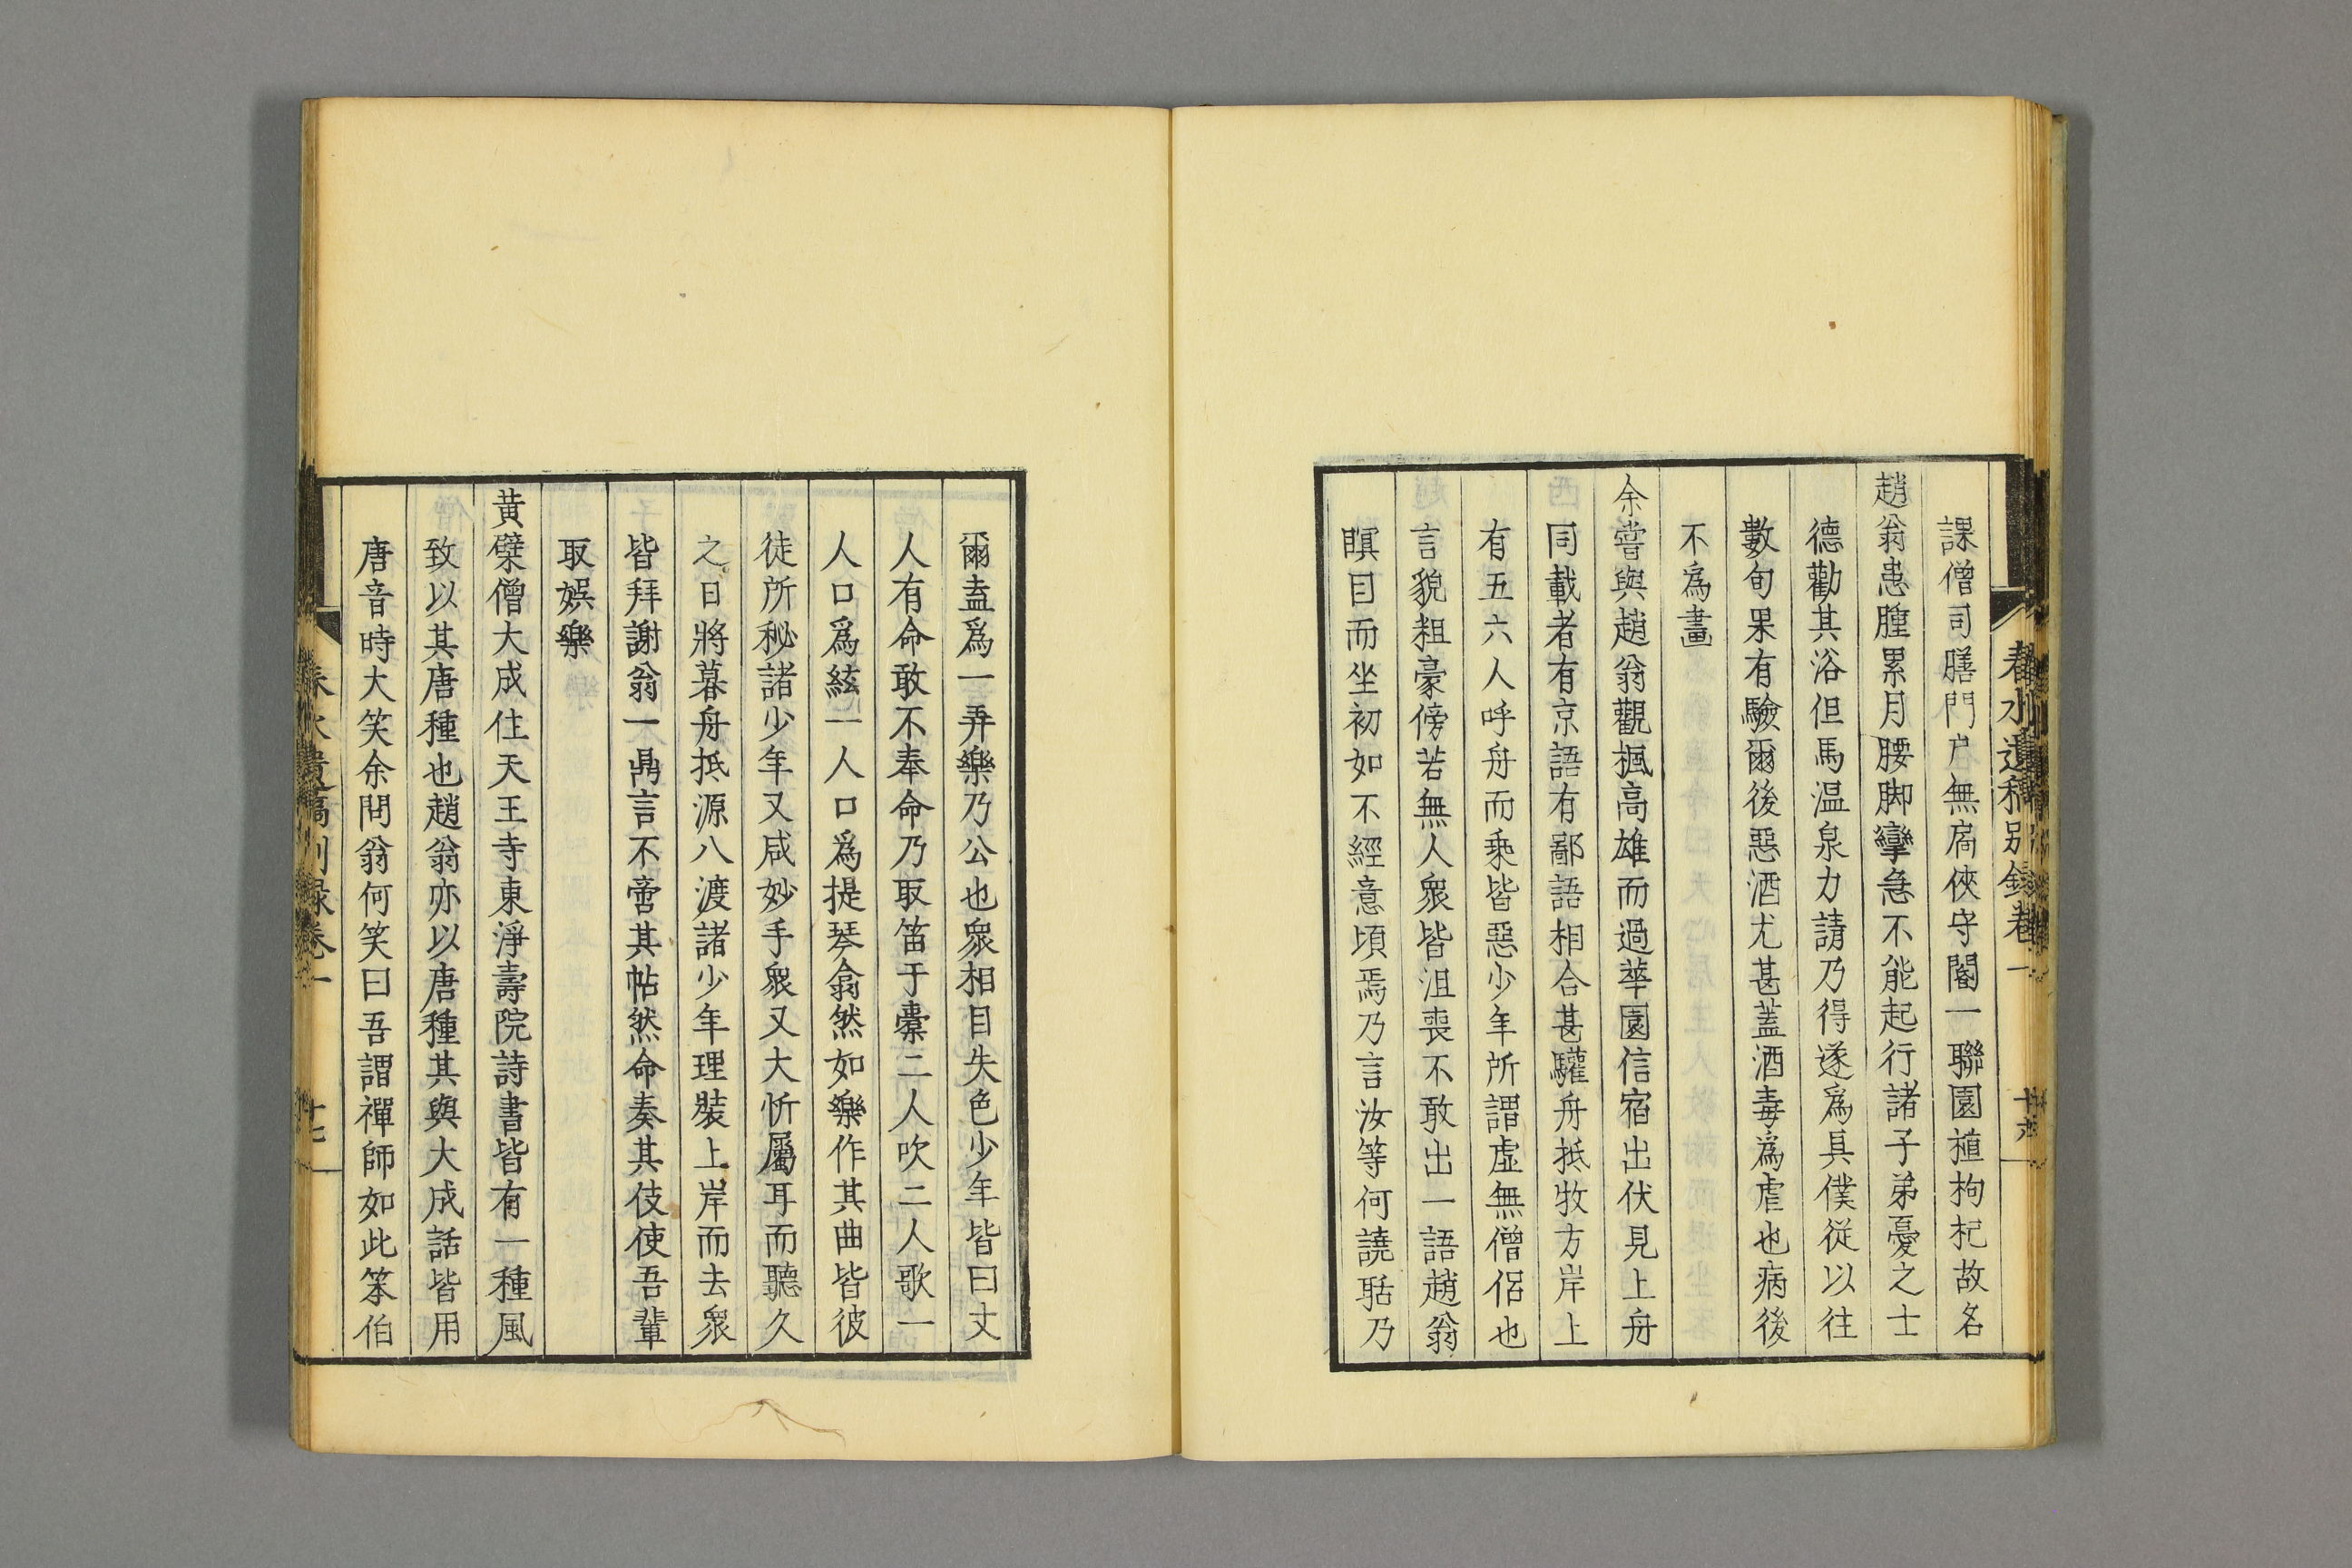 春水遺稿別録卷一
十六
課僧司膳門戸無扃俠守閽一聯園植枸杞故名
趙翁患腫累月腰脚攣急不能起行諸子弟憂之士
德勸其浴但馬温泉力請乃得遂爲具僕従以往
數旬果有驗爾後惡酒尤甚蓋酒毒爲虐也病後
不爲畫
余嘗與趙翁觀楓高雄而過華園信宿出伏見上舟
同載者有京語有鄙語相合甚驩舟抵牧方岸上
有五六人呼舟而乘皆惡少年所謂虚無僧侶也
言貌粗豪傍若無人衆皆沮喪不敢出一語趙翁
瞑目而坐初如不經意頃焉乃言汝等何譊聒乃
爾盍爲一弄樂乃公也衆相目失色少年皆曰丈
人有命敢不奉命乃取笛于橐二人吹二人歌一
人口爲絃一人口爲提琴翕然如樂作其曲皆彼
徒所秘諸少年又咸妙手衆又大忻屬耳而聽久
之日將暮舟抵源八渡諸少年理裝上岸而去衆
皆拜謝翁一鼎言不啻其帖然命奏其伎使吾輩
取娯樂
黄檗僧大成住天王寺東淨壽院詩書皆有一種風
致以其唐種也趙翁亦以唐種其與大成話皆用
唐音時大笑余問翁何笑曰吾謂禪師如此笨伯
春水遺稿別録卷一
十七